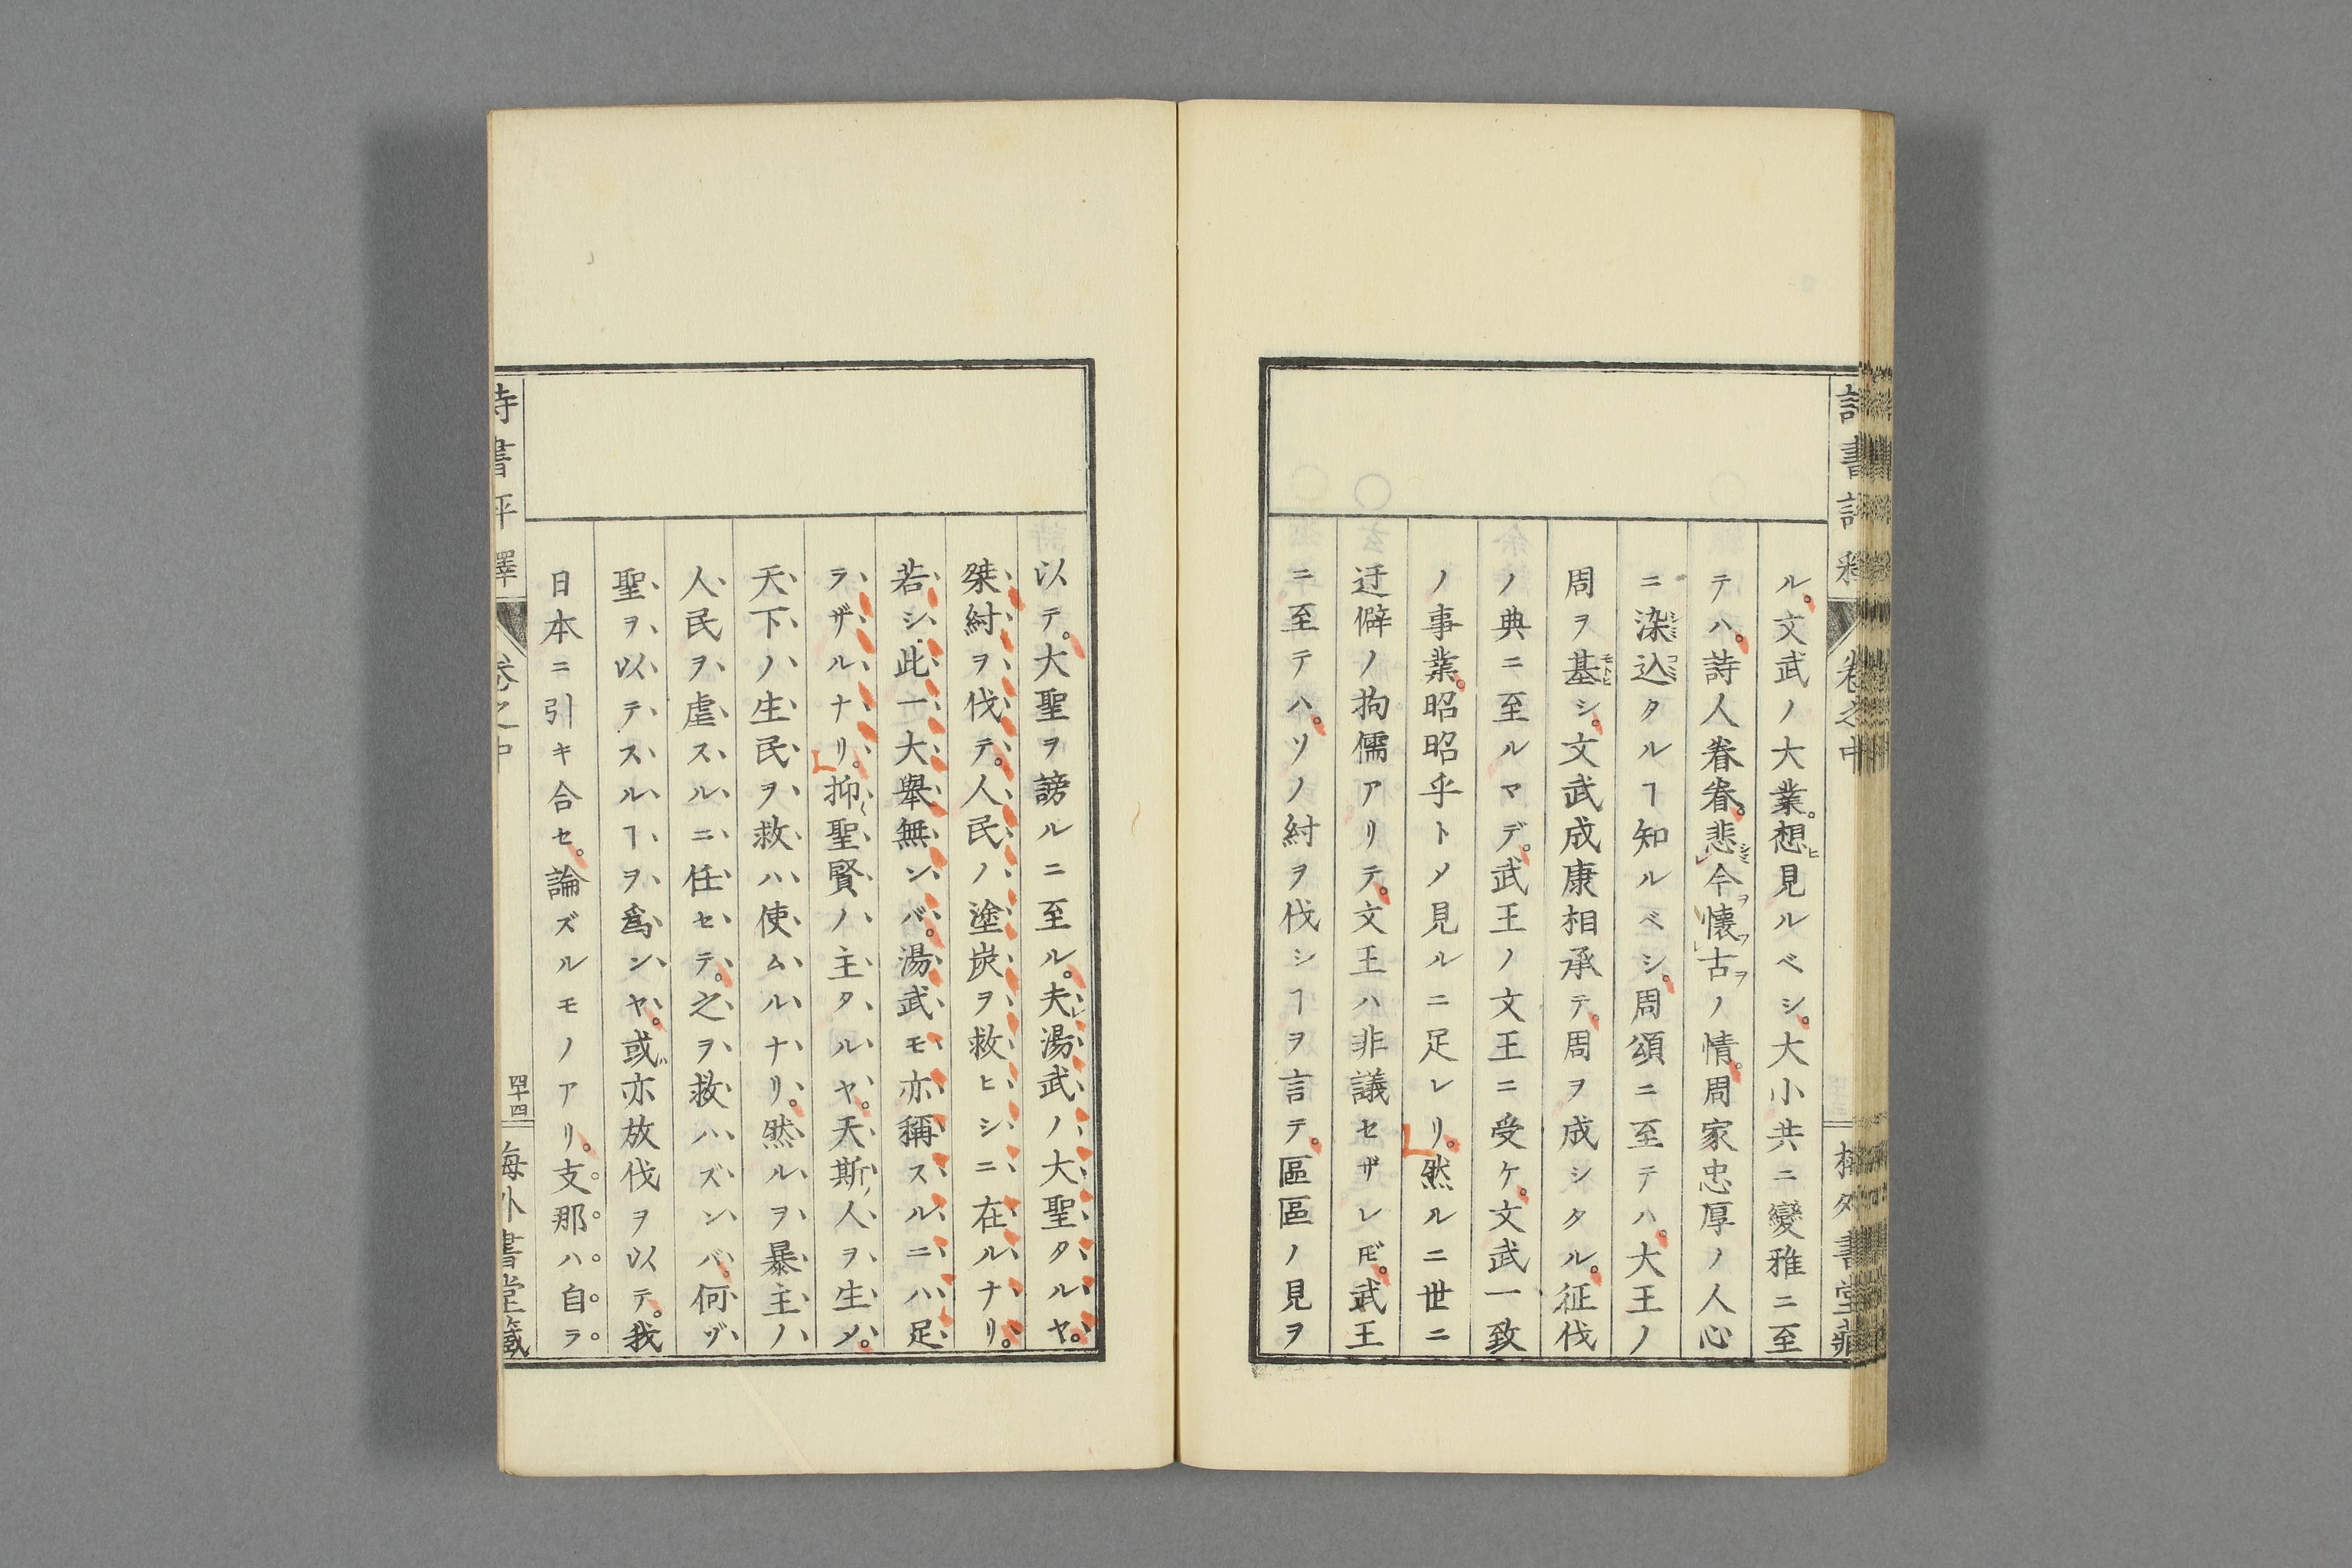 ル。文武ノ大業。想ヒ見ルベシ。大小共ニ變雅ニ至
テハ。詩人眷眷。悲シミ今ヲ懷フ古ヲノ情。周家忠厚ノ人心
ニ染込タルヿ知ルベシ。周頌ニ至テハ。大王ノ
周ヲ基シ。文武成康相承テ。周ヲ成シタル。征伐
ノ典ニ至ルマデ。武王ノ文王ニ受ケ。文武一致
ノ事業。昭昭乎トメ見ルニ足レリ。然ルニ世ニ
迂僻ノ拘儒アリテ。文王ハ非議セザレ𪜈。武王
ニ至テハ。ソノ紂ヲ伐シヿヲ言テ。區區ノ見ヲ
以テ。大聖ヲ謗ルニ至ル。夫レ湯武ノ大聖タルヤ。
桀紂ヲ伐テ。人民ノ塗炭ヲ救ヒシニ在ルナリ。
若シ此一大舉無ンバ。湯武モ亦稱スルニハ足
ラザルナリ。抑〻聖賢ノ主タルヤ。天斯ノ人ヲ生メ。
天下ノ生民ヲ救ハ使ムルナリ。然ルヲ暴主ノ
人民ヲ虐スルニ任セテ。之ヲ救ハズンバ。何ゾ
聖ヲ以テスルヿヲ爲ンヤ。或ハ亦放伐ヲ以テ。我
日本ニ引キ合セ。論ズルモノアリ。支那ハ自ラ
詩書評釋 卷之中 四十四 梅外書堂藏